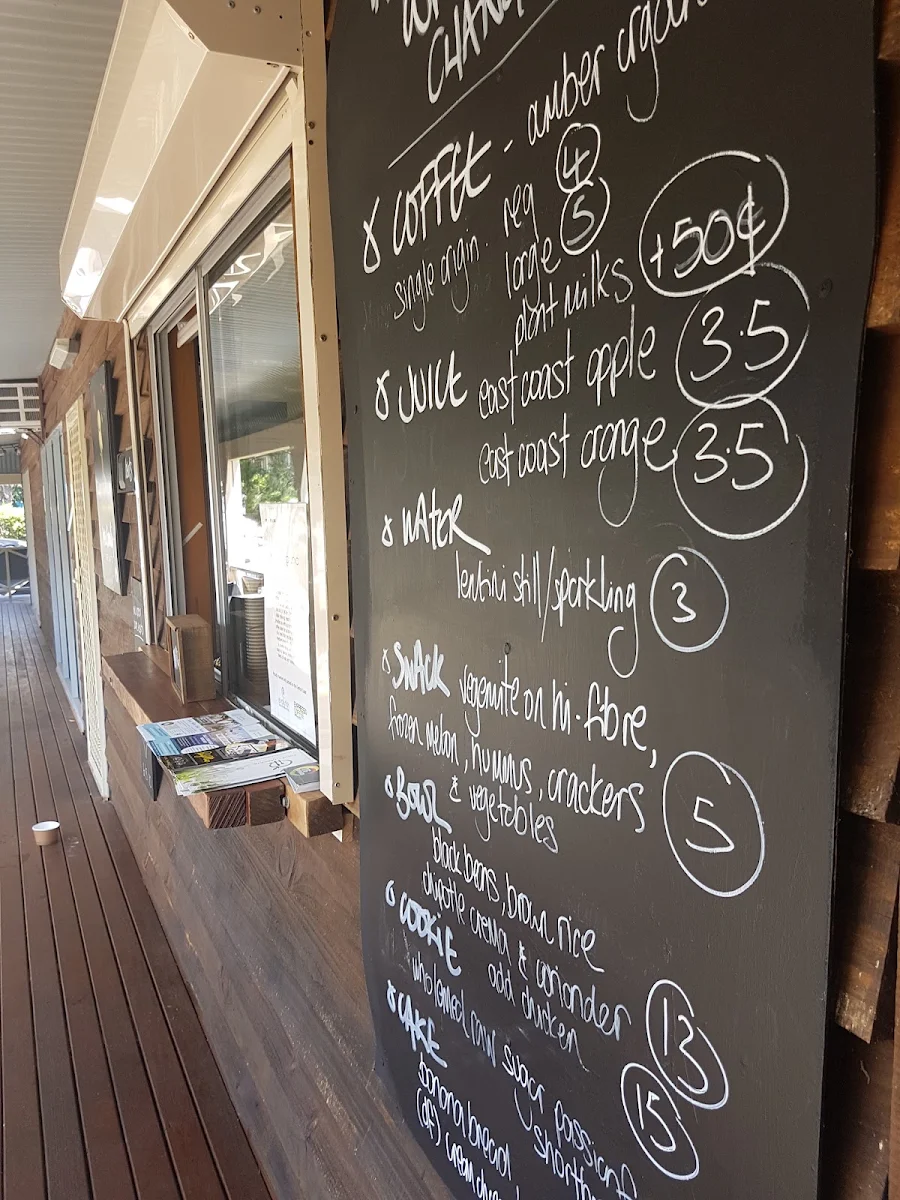 CHANG
COFFEE - amber organi
single origin. reg 4
large 5
plant milks +50¢
JUICE east coast apple 3.5
east coast orange 3.5
WATER
lentini still/sparkling 3
SNACK vegemite on hi-fibre,
frozen melon, hummus, crackers
& vegetables 5
BOWL
black beans, brown rice
chipotle crema & coriander 13
add chicken 15
COOKIE
wholemeal raw sugar passionf
shortb
CAKE
banana bread
(df)